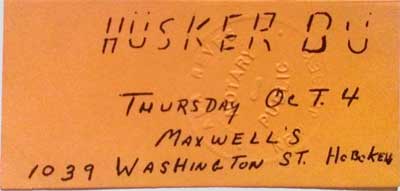 HÜSKER DÜ
THURSDAY OCT. 4
MAXWELL'S
1039 WASHINGTON ST. HOBOKEN
NOTARY
PUBLIC